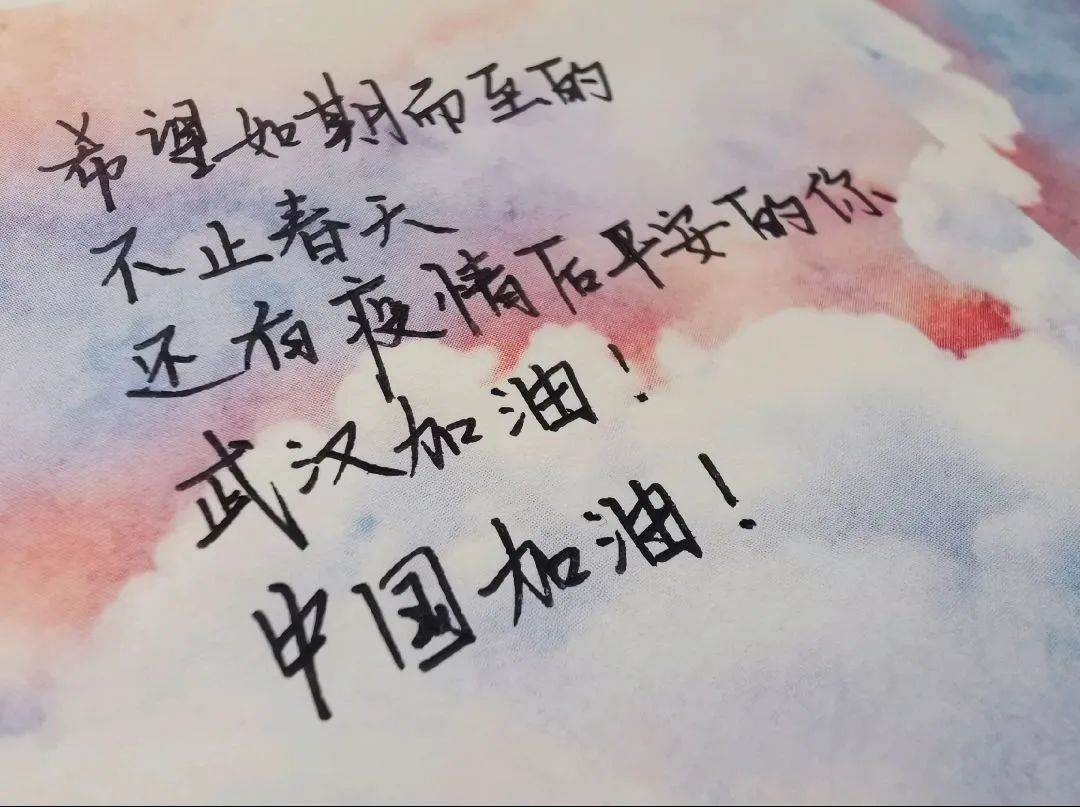 希望如期而至的
不止春天
还有疫情后早安的你
武汉加油！
中国加油！